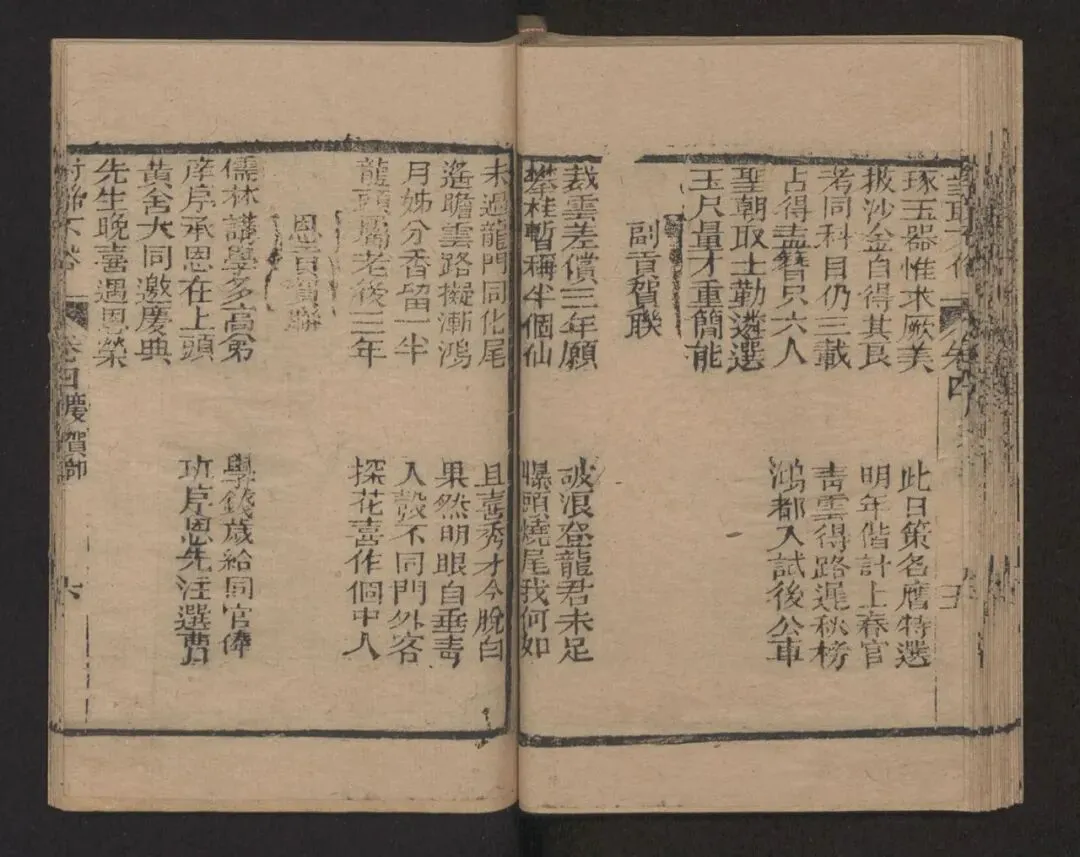 卷四
琢玉器惟求厥美 此日策名膺特選
披沙金自得其良 明年偕計上春官
考同科目仍三載 青雲得路遲秋榜
占得盍簪只六人 鴻都入試後公車
聖朝取士勤遴選
玉尺量才重簡能
副貢賀聯
裁雲差償三年願 破浪登龍君未足
攀桂暫稱半個仙 曝頭燒尾我何如
未過龍門同化尾 且喜秀才今脫白
遙瞻雲路擬漸鴻 果然明眼自垂青
月姊分香留一半 入彀不同門外客
龍頭屬老後三年 探花喜作個中人
恩貢賀聯
儒林講學多高第 學錢歲給同官俸
庠序承恩在上頭 班序恩先注選曹
黃舍大同邀慶典
先生晚喜遇恩榮
慶賀 六